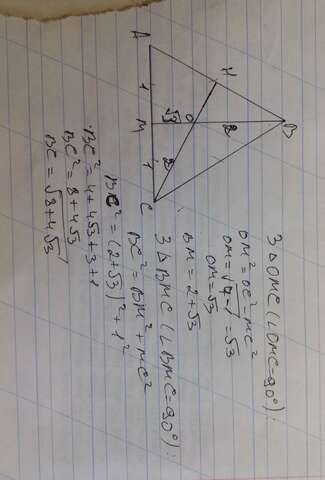 B
H
2
O
2
√3
A
1
M
1
C
З △OMC (∠OMC=90°):
OM²=OC²-MC²
OM=√4-1=√3
OM=√3
BM=2+√3
З △BMC (∠BMC=90°):
BC²=BM²+MC²
BC²=(2+√3)²+1²
BC²=4+4√3+3+1
BC²=8+4√3
BC=√8+4√3